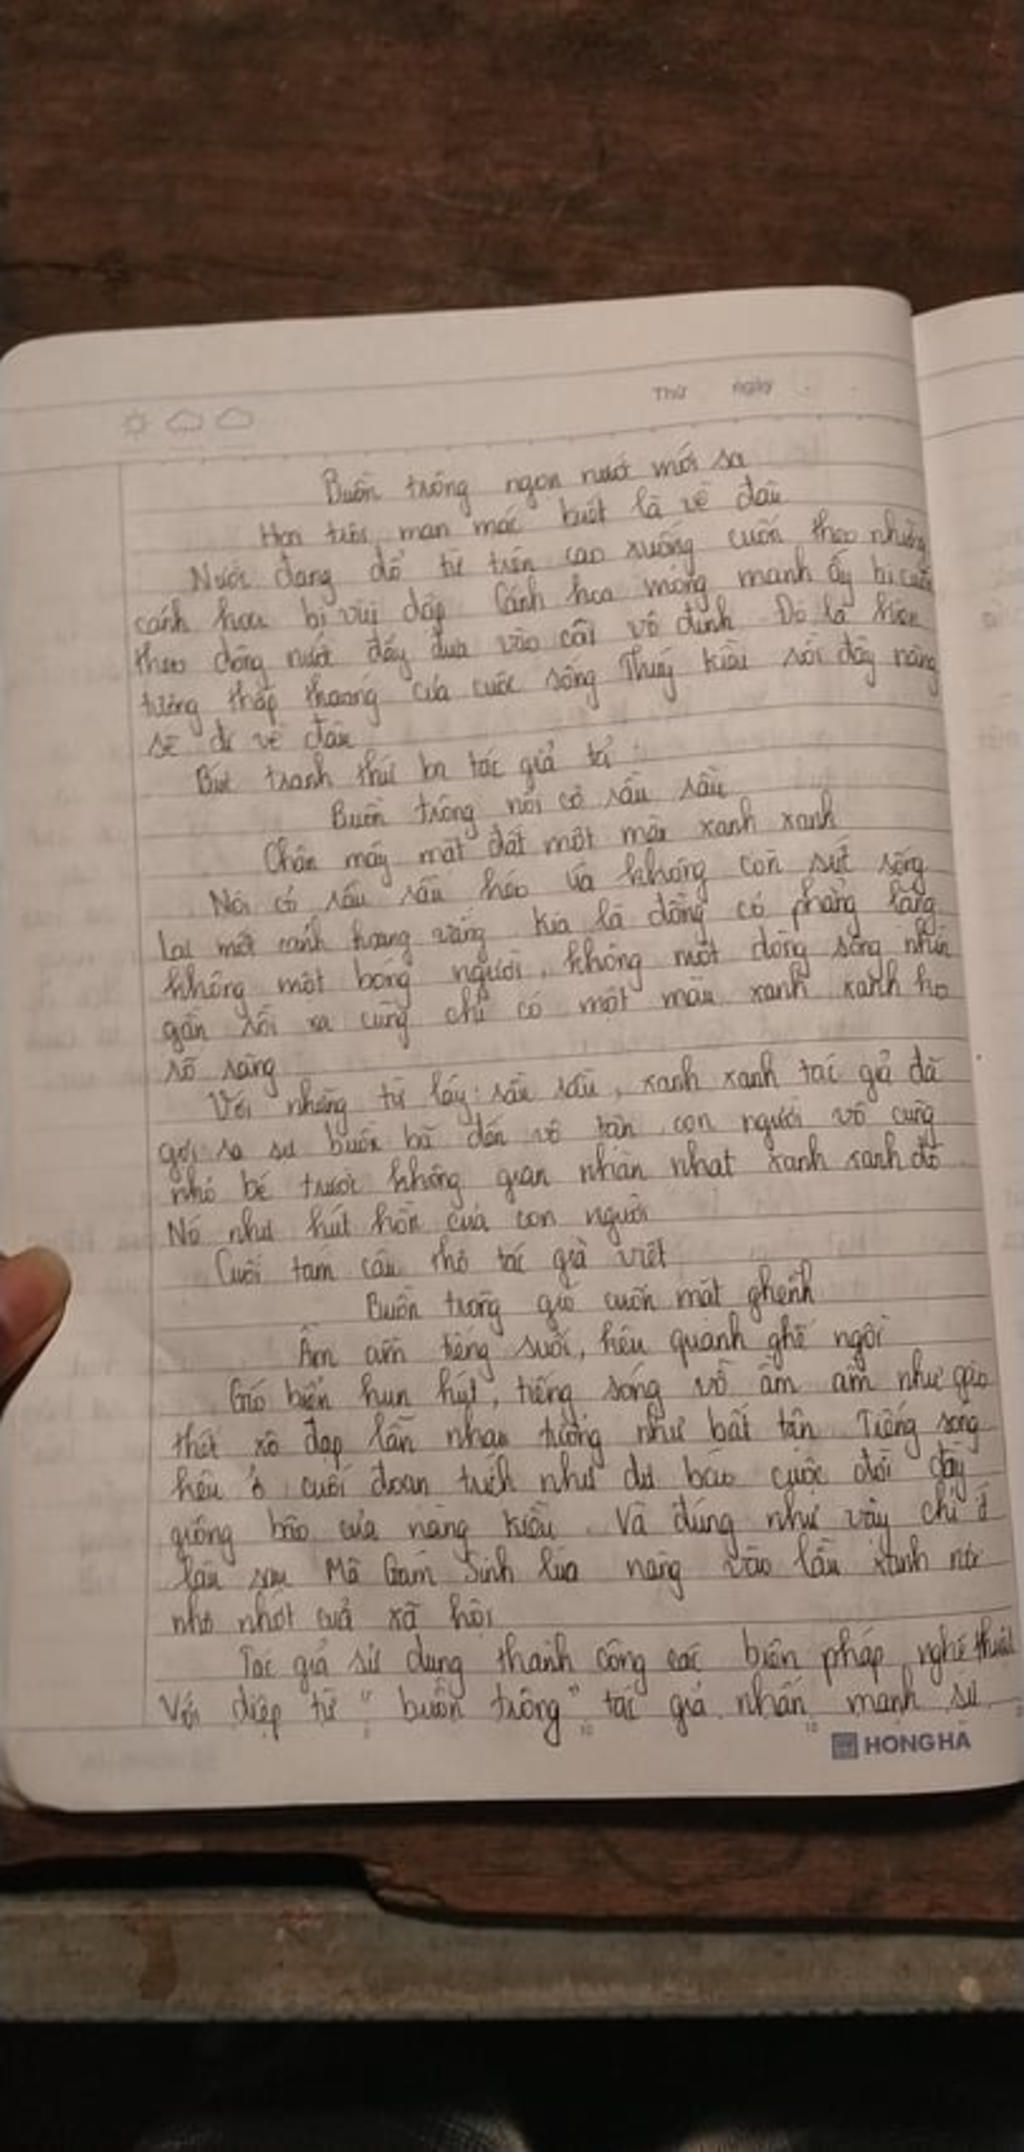 Thứ ngày
Buồn trông ngọn nước mới sa
Hoa trôi man mác biết là về đâu
Nước đang đổ từ trên cao xuống cuốn theo những
cánh hoa bị vùi dập Cánh hoa mỏng manh ấy bị cuốn
theo dòng nước đẩy đưa vào cõi vô định Đó là hiện
tượng thấp thoáng của cuộc sống Thuý Kiều rồi đây nàng
sẽ đi về đâu
Bức tranh thứ ba tác giả tả
Buồn trông nội cỏ rầu rầu
Chân mây mặt đất một màu xanh xanh
Nội cỏ rầu rầu héo úa không còn sức sống
Lại một cảnh hoang vắng Kia là đồng cỏ phẳng lặng
không một bóng người, không một dòng sông nhìn
gần rồi xa cũng chỉ có một màu xanh xanh
rõ ràng
Với những từ láy: rầu rầu, xanh xanh tác giả đã
gợi ra sự buồn bã đến vô tận con người vô cùng
nhỏ bé trước không gian nhàn nhạt xanh xanh đó
Nó như hút hồn của con người
Cuối tám câu thơ tác giả viết
Buồn trong gió cuốn mặt ghềnh
Ầm ầm tiếng suối, kêu quanh ghế ngồi
Gió biển hun hút, tiếng sóng vỗ ầm ầm như gào
thét xô đạp lẫn nhau tưởng như bất tận Tiếng sóng
kêu ở cuối đoạn trích như dự báo cuộc đời đầy
giông bão của nàng Kiều. Và đúng như vậy chỉ ít
lâu sau Mã Giám Sinh lừa nàng vào lầu xanh nơi
nhơ nhớt của xã hội
Tác giả sử dụng thành công các biện pháp nghệ thuật
Với điệp từ " buồn trông" tác giả nhấn mạnh sự
HONG HA